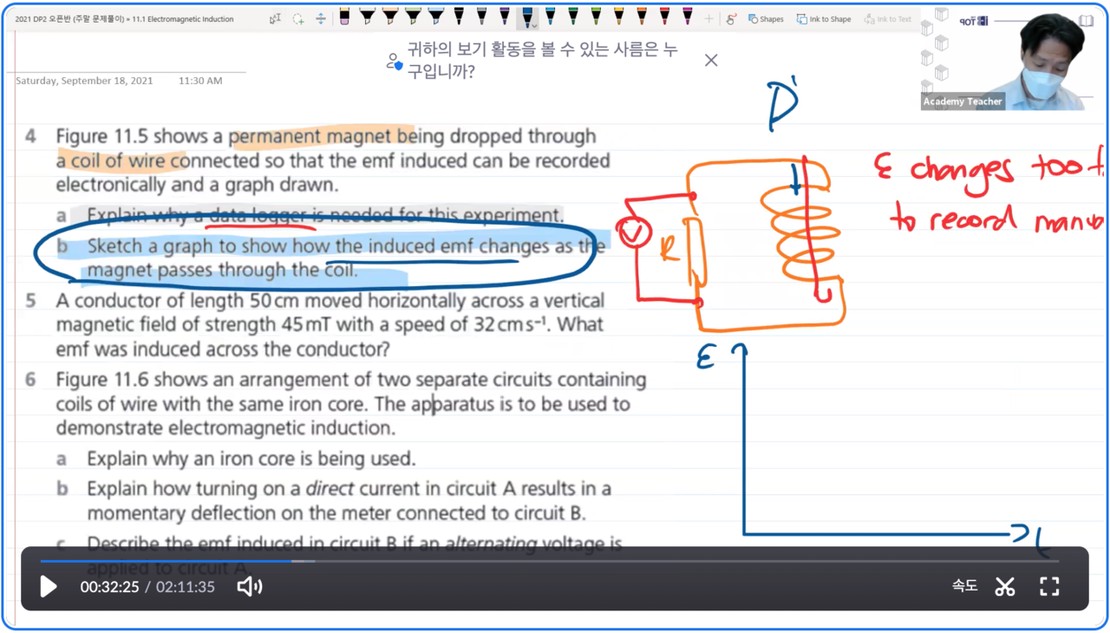 2021 DP2 오픈반 (주말 문제풀이) » 11.1 Electromagnetic Induction
Shapes
Ink to Shape
Ink to Text
귀하의 보기 활동을 볼 수 있는 사름은 누
구입니까?
Saturday, September 18, 2021 11:30 AM
Academy Teacher
4 Figure 11.5 shows a permanent magnet being dropped through
a coil of wire connected so that the emf induced can be recorded
electronically and a graph drawn.
a Explain why a data logger is needed for this experiment.
b Sketch a graph to show how the induced emf changes as the
magnet passes through the coil.
5 A conductor of length 50 cm moved horizontally across a vertical
magnetic field of strength 45 mT with a speed of 32 cm s⁻¹. What
emf was induced across the conductor?
6 Figure 11.6 shows an arrangement of two separate circuits containing
coils of wire with the same iron core. The apparatus is to be used to
demonstrate electromagnetic induction.
a Explain why an iron core is being used.
b Explain how turning on a direct current in circuit A results in a
momentary deflection on the meter connected to circuit B.
c Describe the emf induced in circuit B if an alternating voltage is
applied to circuit A.
V
R
ε changes too
to record
ε
t
00:32:25 / 02:11:35
속도